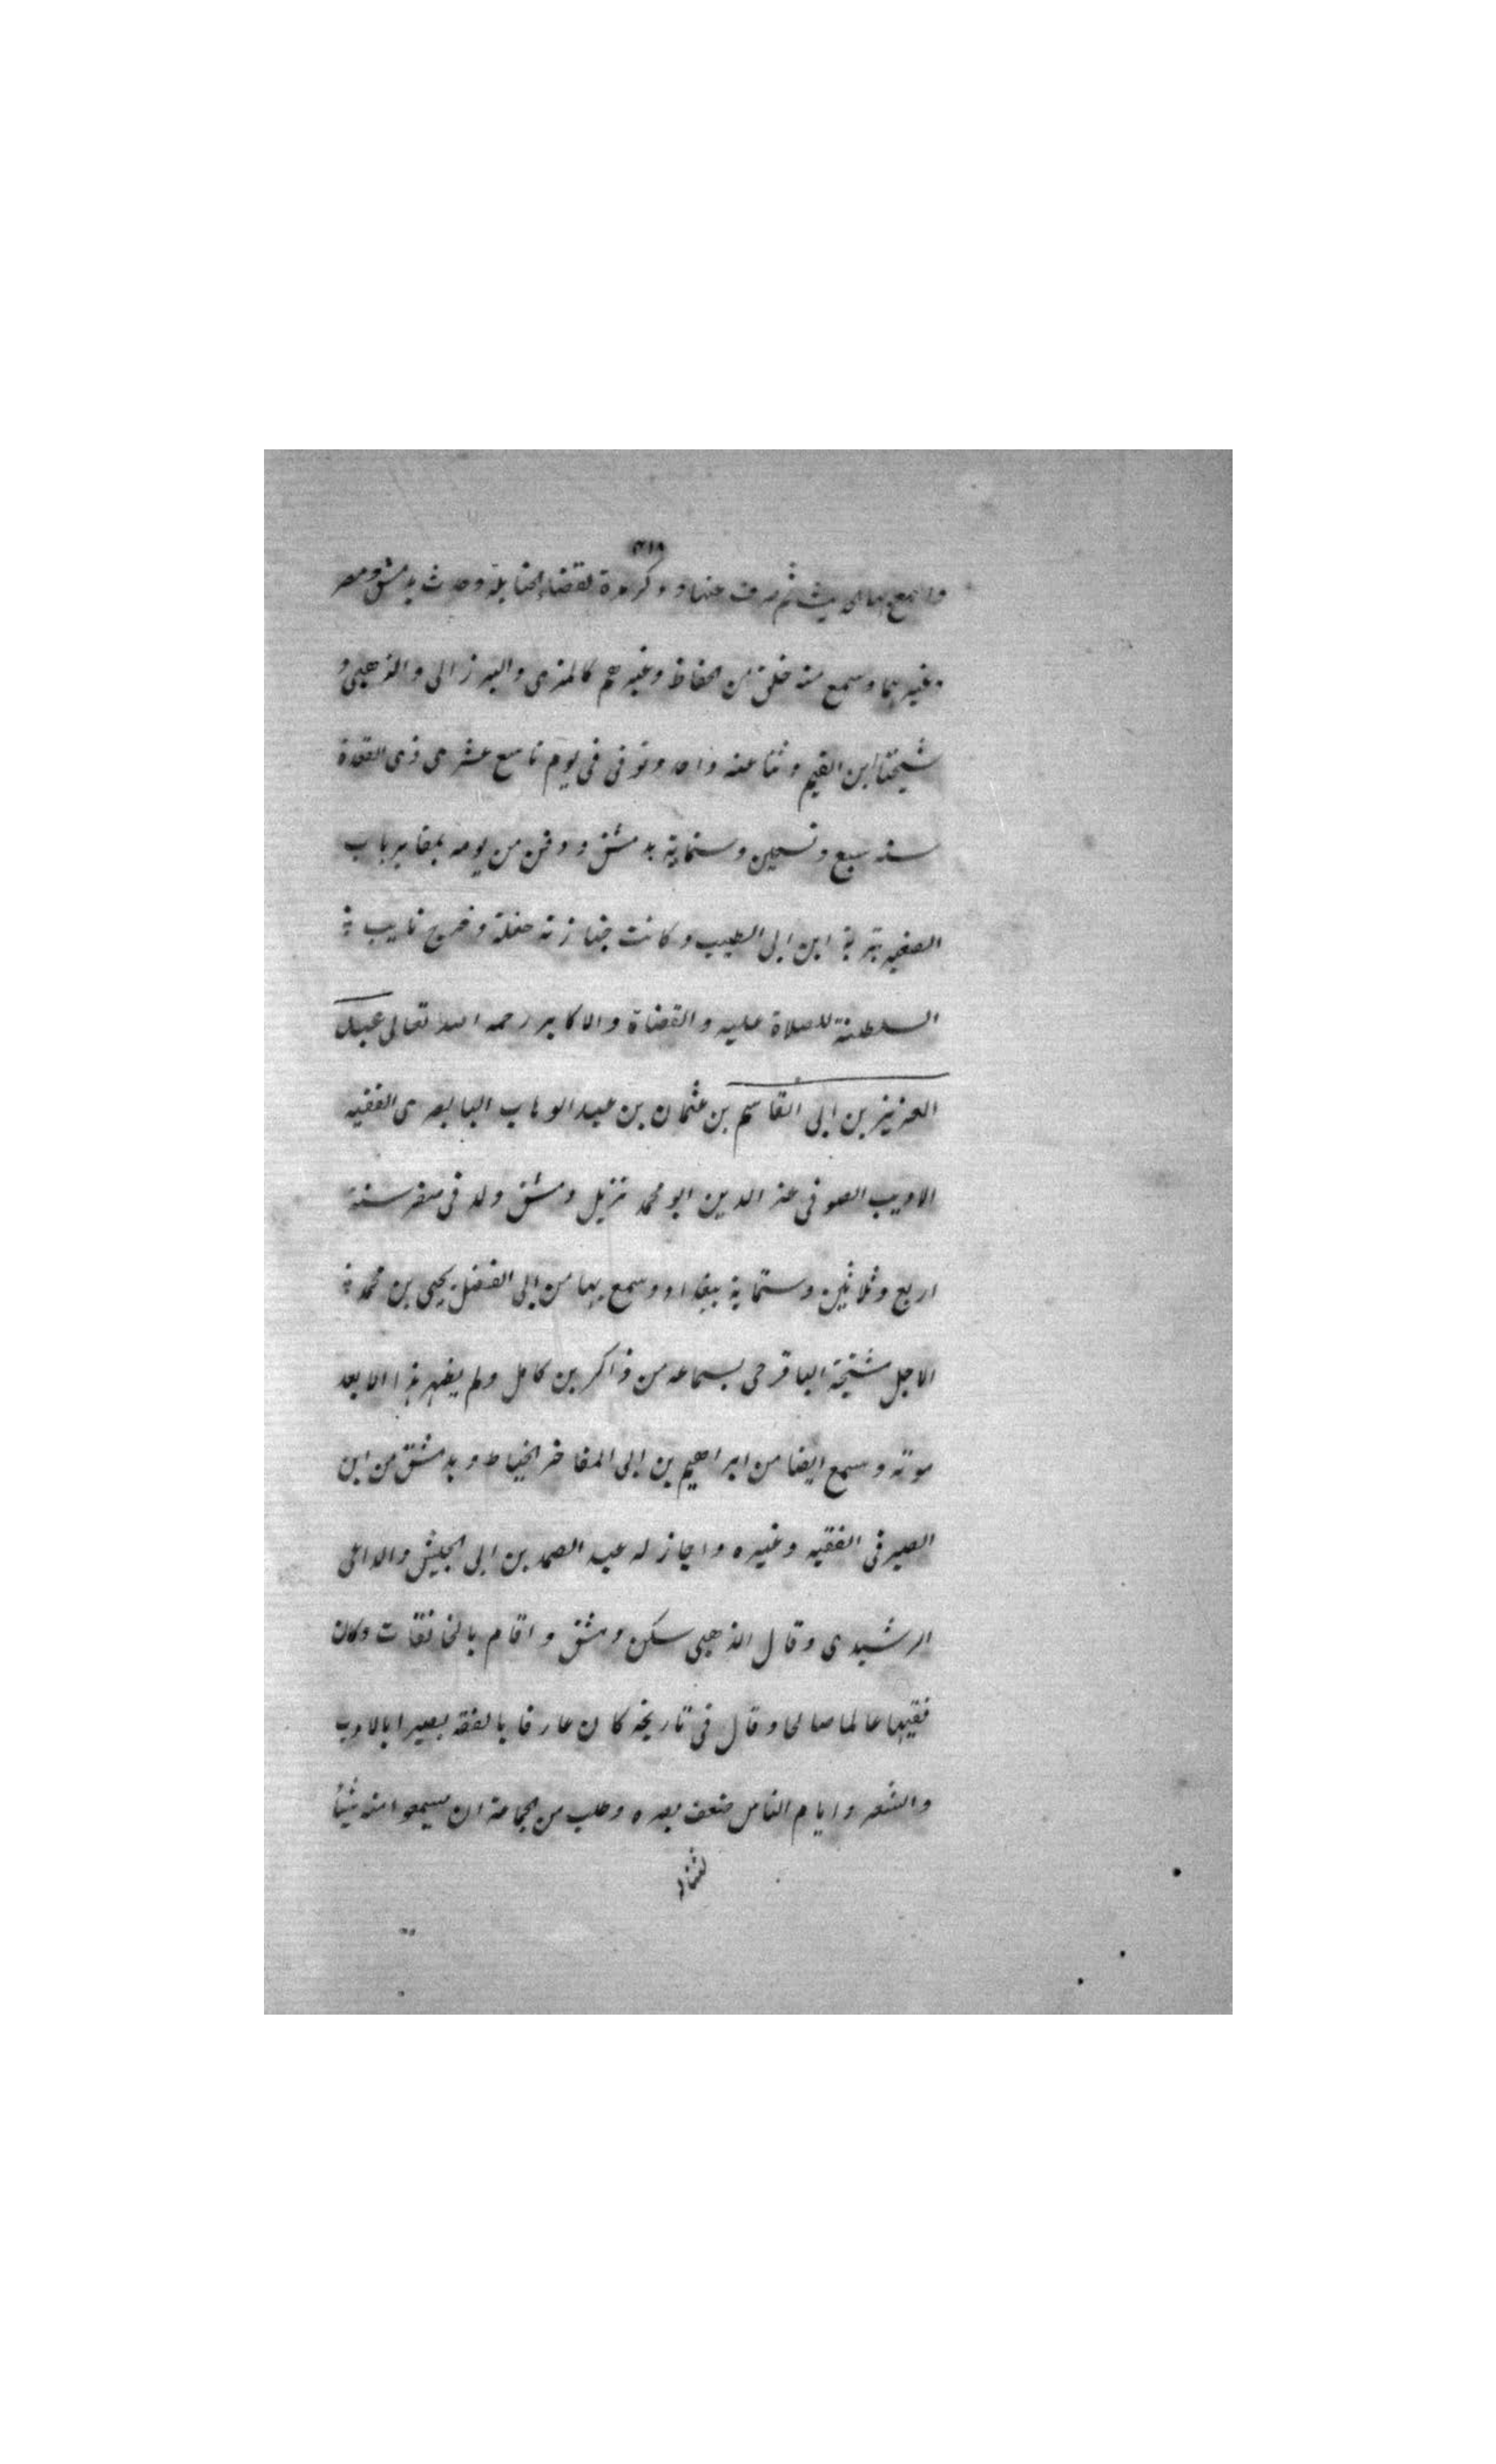 واسمع بها الحديث ثم صرف عنها وذكر مرة لقضاء الحنابلة وحدث بدمشق ومصر
وغيرهما وسمع منه خلق من الحفاظ وغيرهم كالمزى والبرزالى والذهبى و
شيخنا ابن القيم وثنا عنه واحد وتوفى فى يوم تاسع عشرى ذى القعدة
سنه سبع وتسعين وستماية بدمشق ودفن من يومه بمقابر باب
الصغير بتربة ابن ابى الطيب وكانت جنازته حفلة وخرج نايب
السلطنة للصلاة عليه والقضاة والاكابر رحمه الله تعالى عبد
العزيز بن ابى القاسم بن عثمان بن عبد الوهاب البابصرى الفقيه
الاديب الصوفى عز الدين ابو محمد نزيل دمشق ولد فى صفر سنة
اربع وثلاثين وستماية ببغداد وسمع بها من ابى الفضل يحيى بن محمد
الاجل مشيخة الباقرحى بسماعه من ذاكر بن كامل ولم يظهر هذا الا بعد
موته وسمع ايضا من ابراهيم بن ابى المفاخر الخياط وبدمشق من ابن
الصيرفى الفقيه وغيره واجاز له عبد الصمد بن ابى الجيش والداعى
الرشيدى وقال الذهبى سكن دمشق واقام بالخانقات وكان
فقيها عالما صالحا وقال فى تاريخه كان عارفا بالفقه بصيرا بالادب
والشعر وايام الناس ضعف بصره وطلب من الجماعة ان يسمعوا منه شيئا